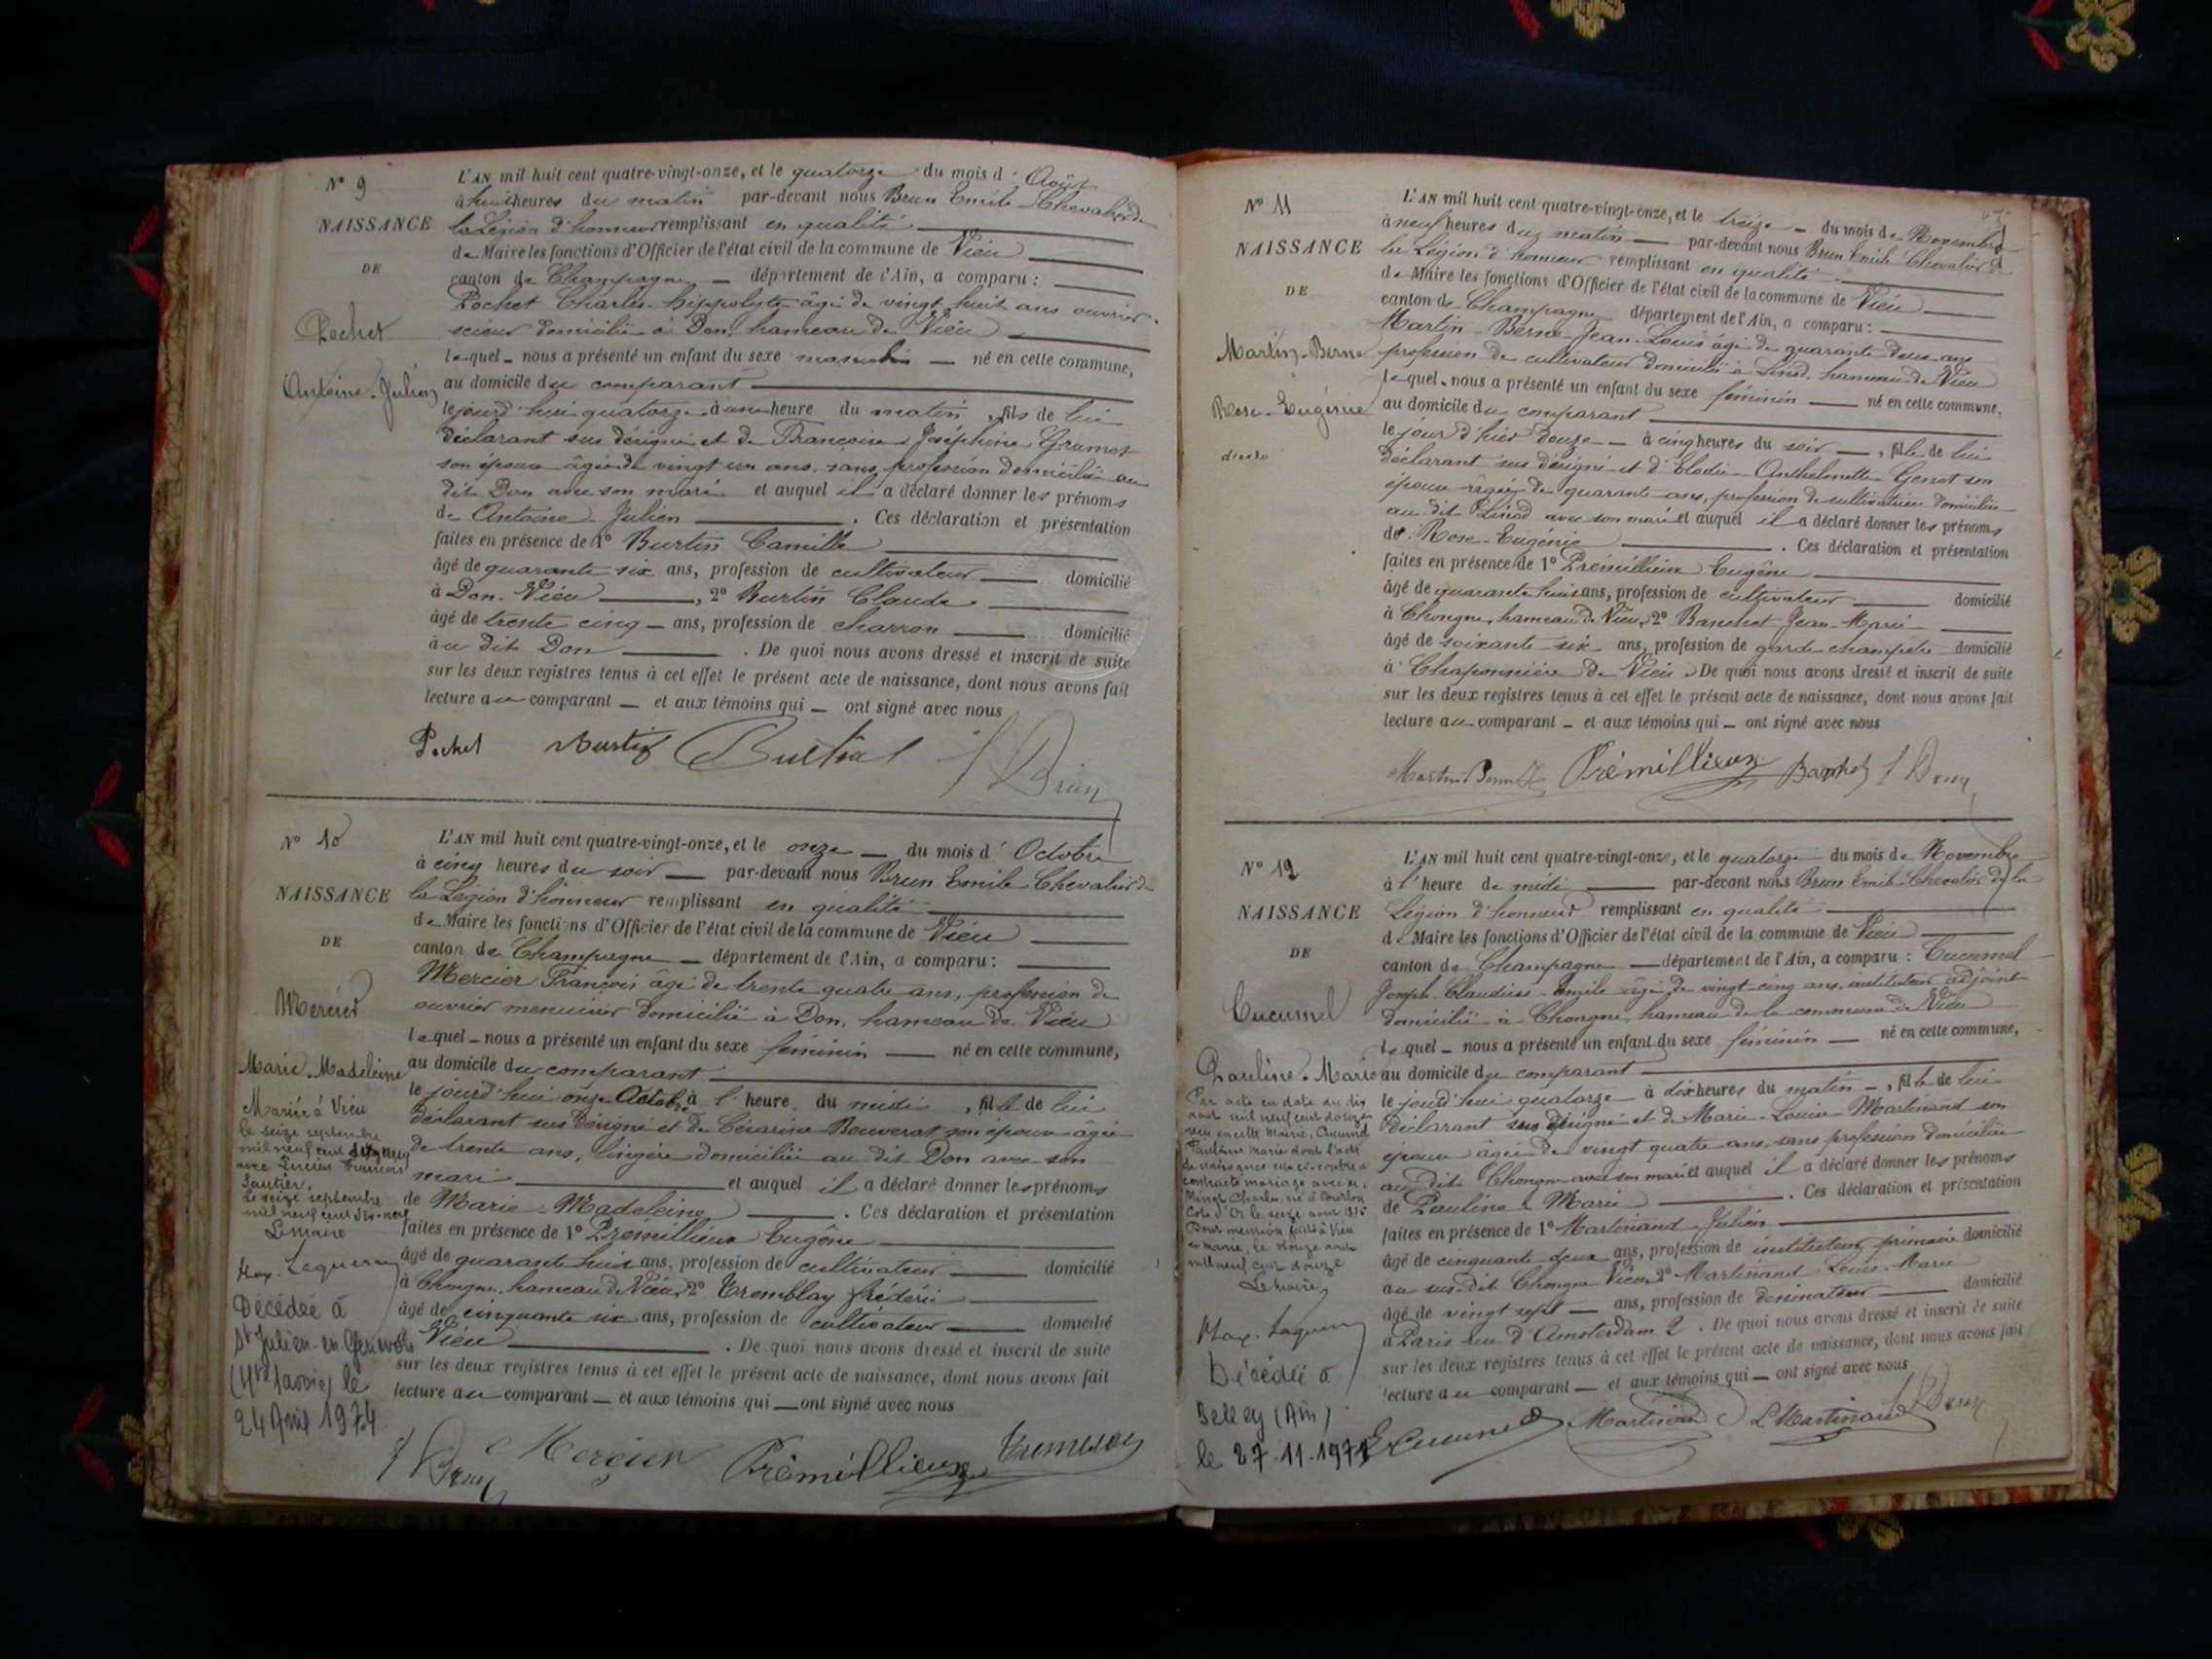 N° 9
NAISSANCE
DE
Pochet
Antoine-Julien
L'AN mil huit cent quatre-vingt-onze, et le quatorze du mois d'Août
à huit heures du matin par-devant nous Brun Emile Chevalier de
la Légion d'honneur remplissant en qualité
de Maire les fonctions d'Officier de l'état civil de la commune de Vieu
canton de Champagne département de l'Ain, a comparu :
Pochet Charles-hippolyte âgé de vingt huit ans ouvrier
scieur domicilié à Don, hameau de Vieu
lequel nous a présenté un enfant du sexe masculin né en cette commune,
au domicile du comparant
le jourd'hui quatorze à une heure du matin, fils de lui
déclarant sus désigné et de Françoise Joséphine Grumet
son épouse âgée de vingt un ans, sans profession domiciliée au
dit Don avec son mari et auquel il a déclaré donner les prénoms
de Antoine Julien. Ces déclaration et présentation
faites en présence de 1° Burtin Camille
âgé de quarante six ans, profession de cultivateur domicilié
à Don-Vieu, 2° Burtin Claude
âgé de trente cinq ans, profession de charron domicilié
au dit Don. De quoi nous avons dressé et inscrit de suite
sur les deux registres tenus à cet effet le présent acte de naissance, dont nous avons fait
lecture au comparant et aux témoins qui ont signé avec nous
Pochet Burtin Burtin Brun
N° 10
NAISSANCE
DE
Mercier
Marie-Madeleine
Mariée à Vieu
le seize septembre
mil neuf cent dix neuf
avec Lucien François
Gautier.
Le seize septembre
mil neuf cent dix-neuf
Le Maire
Décédée à
St Julien-en-Genevois
(Hte Savoie) le
24 Avril 1974
L'AN mil huit cent quatre-vingt-onze, et le onze du mois d'Octobre
à cinq heures du soir par-devant nous Brun Emile Chevalier de
la Légion d'honneur remplissant en qualité
de Maire les fonctions d'Officier de l'état civil de la commune de Vieu
canton de Champagne département de l'Ain, a comparu :
Mercier François âgé de trente quatre ans, profession de
ouvrier menuisier domicilié à Don, hameau de Vieu
lequel nous a présenté un enfant du sexe féminin né en cette commune,
au domicile du comparant
le jourd'hui onze Octobre à l'heure du midi, fille de lui
déclarant sus désigné et de Césarine Bouverat son épouse âgée
de trente ans, lingère domiciliée au dit Don avec son
mari et auquel il a déclaré donner les prénoms
de Marie-Madeleine. Ces déclaration et présentation
faites en présence de 1° Prémillieux Eugène
âgé de quarante huit ans, profession de cultivateur domicilié
à Chongne, hameau de Vieu, 2° Tremblay frédéric
âgé de cinquante six ans, profession de cultivateur domicilié
à Vieu. De quoi nous avons dressé et inscrit de suite
sur les deux registres tenus à cet effet le présent acte de naissance, dont nous avons fait
lecture au comparant et aux témoins qui ont signé avec nous
Brun Mercier Prémillieux
N° 11
NAISSANCE
DE
Martin-Berne
Rose-Eugénie
L'AN mil huit cent quatre-vingt-onze, et le treize du mois de Novembre
à neuf heures du matin par-devant nous Brun Emile Chevalier de
la Légion d'honneur remplissant en qualité
de Maire les fonctions d'Officier de l'état civil de la commune de Vieu
canton de Champagne département de l'Ain, a comparu :
Martin-Berne Jean-Louis âgé de quarante deux ans
profession de cultivateur domicilié à Linod, hameau de Vieu
lequel nous a présenté un enfant du sexe féminin né en cette commune,
au domicile du comparant
le jour d'hier douze à cinq heures du soir, fille de lui
déclarant sus désigné et d'Elodie Anthelmette Genet son
épouse âgée de quarante ans, profession de cultivatrice domiciliée
au dit Linod avec son mari et auquel il a déclaré donner les prénoms
de Rose-Eugénie. Ces déclaration et présentation
faites en présence de 1° Prémillieux Eugène
âgé de quarante huit ans, profession de cultivateur domicilié
à Chongne, hameau de Vieu, 2° Banchet Jean-Marie
âgé de soixante six ans, profession de garde champêtre domicilié
à Chaponnière de Vieu. De quoi nous avons dressé et inscrit de suite
sur les deux registres tenus à cet effet le présent acte de naissance, dont nous avons fait
lecture au comparant et aux témoins qui ont signé avec nous
Martin Berne Prémillieux Banchet Brun
N° 12
NAISSANCE
DE
Cucumel
Pauline-Marie
Par acte en date du dix
août mil neuf cent douze
reçu en cette Mairie, Cucumel
Pauline Marie dont l'acte
de naissance est ci-contre a
contracté mariage avec
Charles, né à Courlon
Côte d'Or le seize août
Pour mention faite à Vieu
en mairie, le douze août
mil neuf cent douze
Le Maire
Décédée à
Belley (Ain)
le 27.11.1971
L'AN mil huit cent quatre-vingt-onze, et le quatorze du mois de Novembre
à l'heure de midi par-devant nous Brun Emile Chevalier de la
Légion d'honneur remplissant en qualité
de Maire les fonctions d'Officier de l'état civil de la commune de Vieu
canton de Champagne département de l'Ain, a comparu : Cucumel
Joseph-Claudius-Emile âgé de vingt-cinq ans, instituteur adjoint
domicilié à Chongne, hameau de la commune de Vieu
lequel nous a présenté un enfant du sexe féminin né en cette commune,
au domicile du comparant
le jourd'hui quatorze à dix heures du matin, fille de lui
déclarant sus désigné et de Marie-Louise Martinand son
épouse âgée de vingt quatre ans, sans profession domiciliée
au dit Chongne avec son mari et auquel il a déclaré donner les prénoms
de Pauline Marie. Ces déclaration et présentation
faites en présence de 1° Martinand Julien
âgé de cinquante deux ans, profession de instituteur primaire domicilié
au sus-dit Chongne Vieu, 2° Martinand Louis-Marie
âgé de vingt sept ans, profession de dessinateur domicilié
à Paris rue d'Amsterdam 2. De quoi nous avons dressé et inscrit de suite
sur les deux registres tenus à cet effet le présent acte de naissance, dont nous avons fait
lecture au comparant et aux témoins qui ont signé avec nous
E Cucumel Martinand L Martinand Brun